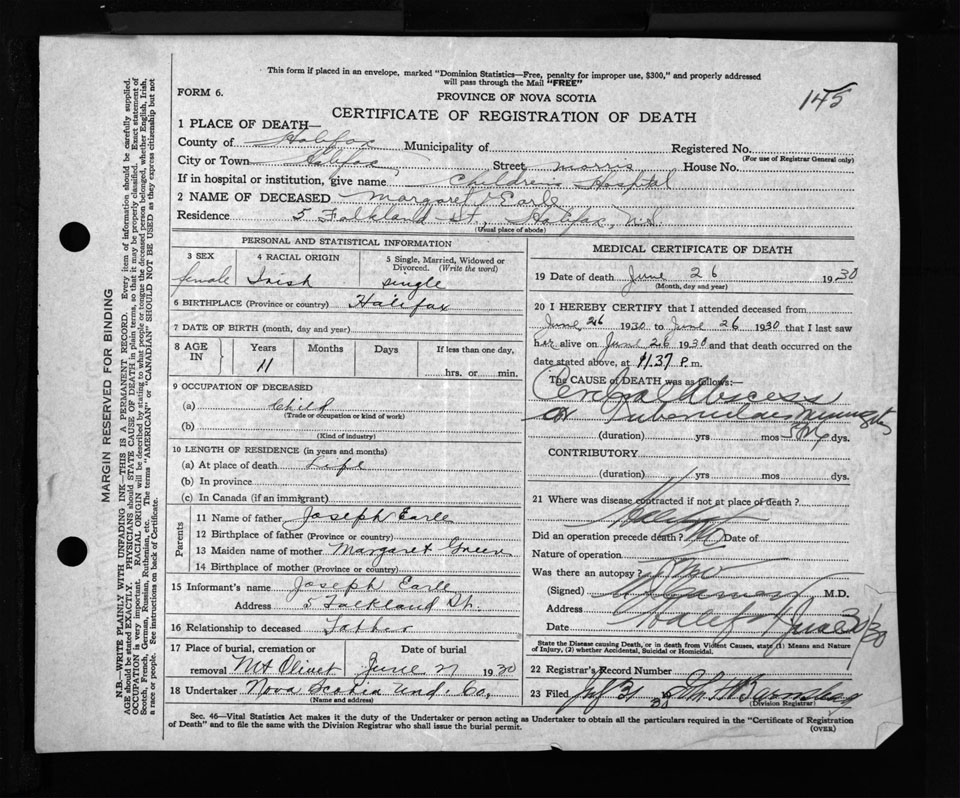 This form if placed in an envelope, marked "Dominion Statistics—Free, penalty for improper use, $300," and properly addressed
will pass through the Mail "FREE"
FORM 6.
PROVINCE OF NOVA SCOTIA
145
CERTIFICATE OF REGISTRATION OF DEATH
1 PLACE OF DEATH—
County of Halifax Municipality of Registered No.
(For use of Registrar General only)
City or Town Halifax, Street Morris House No.
If in hospital or institution, give name Children's Hospital
2 NAME OF DECEASED Margaret Earle
Residence 5 Falkland St., Halifax, N.S.
(Usual place of abode)
PERSONAL AND STATISTICAL INFORMATION
3 SEX 4 RACIAL ORIGIN 5 Single, Married, Widowed or
Divorced. (Write the word)
female Irish single
6 BIRTHPLACE (Province or country) Halifax
7 DATE OF BIRTH (month, day and year)
8 AGE IN Years Months Days If less than one day,
11 hrs. or min.
9 OCCUPATION OF DECEASED
(a) Child
(Trade or occupation or kind of work)
(b)
(Kind of industry)
10 LENGTH OF RESIDENCE (in years and months)
(a) At place of death Life
(b) In province
(c) In Canada (if an immigrant)
Parents
11 Name of father Joseph Earle
12 Birthplace of father (Province or country)
13 Maiden name of mother Margaret Green
14 Birthplace of mother (Province or country)
15 Informant's name Joseph Earle
Address 5 Falkland St.
16 Relationship to deceased Father
17 Place of burial, cremation or Date of burial
removal Mt Olivet June 27 1930
18 Undertaker Nova Scotia Und. Co.
(Name and address)
MEDICAL CERTIFICATE OF DEATH
19 Date of death June 26 1930
(Month, day and year)
20 I HEREBY CERTIFY that I attended deceased from
June 26 1930 to June 26 1930 that I last saw
her alive on June 26 1930 and that death occurred on the
date stated above, at 11.37 P.m.
The CAUSE of DEATH was as follows:—
Cerebral Abscess
or Tuberculous Meningitis
(duration) yrs mos dys.
CONTRIBUTORY
(duration) yrs mos dys.
21 Where was disease contracted if not at place of death?
Halifax
Did an operation precede death? No Date of
Nature of operation
Was there an autopsy? No
(Signed) M.D.
Address Halifax
Date June 30/30
State the Disease causing Death, or in death from Violent Causes, state (1) Means and Nature
of Injury, (2) whether Accidental, Suicidal or Homicidal.
22 Registrar's Record Number
23 Filed
(Division Registrar)
Sec. 46—Vital Statistics Act makes it the duty of the Undertaker or person acting as Undertaker to obtain all the particulars required in the "Certificate of Registration
of Death" and to file the same with the Division Registrar who shall issue the burial permit.
(OVER)
MARGIN RESERVED FOR BINDING
N.B.—WRITE PLAINLY WITH UNFADING INK—THIS IS A PERMANENT RECORD. Every item of information should be carefully supplied.
AGE should be stated EXACTLY. PHYSICIANS should STATE CAUSE OF DEATH in plain terms, so that it may be properly classified. Exact statement of
OCCUPATION is very important. RACIAL ORIGIN will be described by stating to what people or tongue the deceased person belonged, whether English, Irish,
Scotch, French, German, Russian, Ruthenian, etc. The terms "AMERICAN" or "CANADIAN" SHOULD NOT BE USED as they express citizenship but not
a race or people. See instructions on back of Certificate.